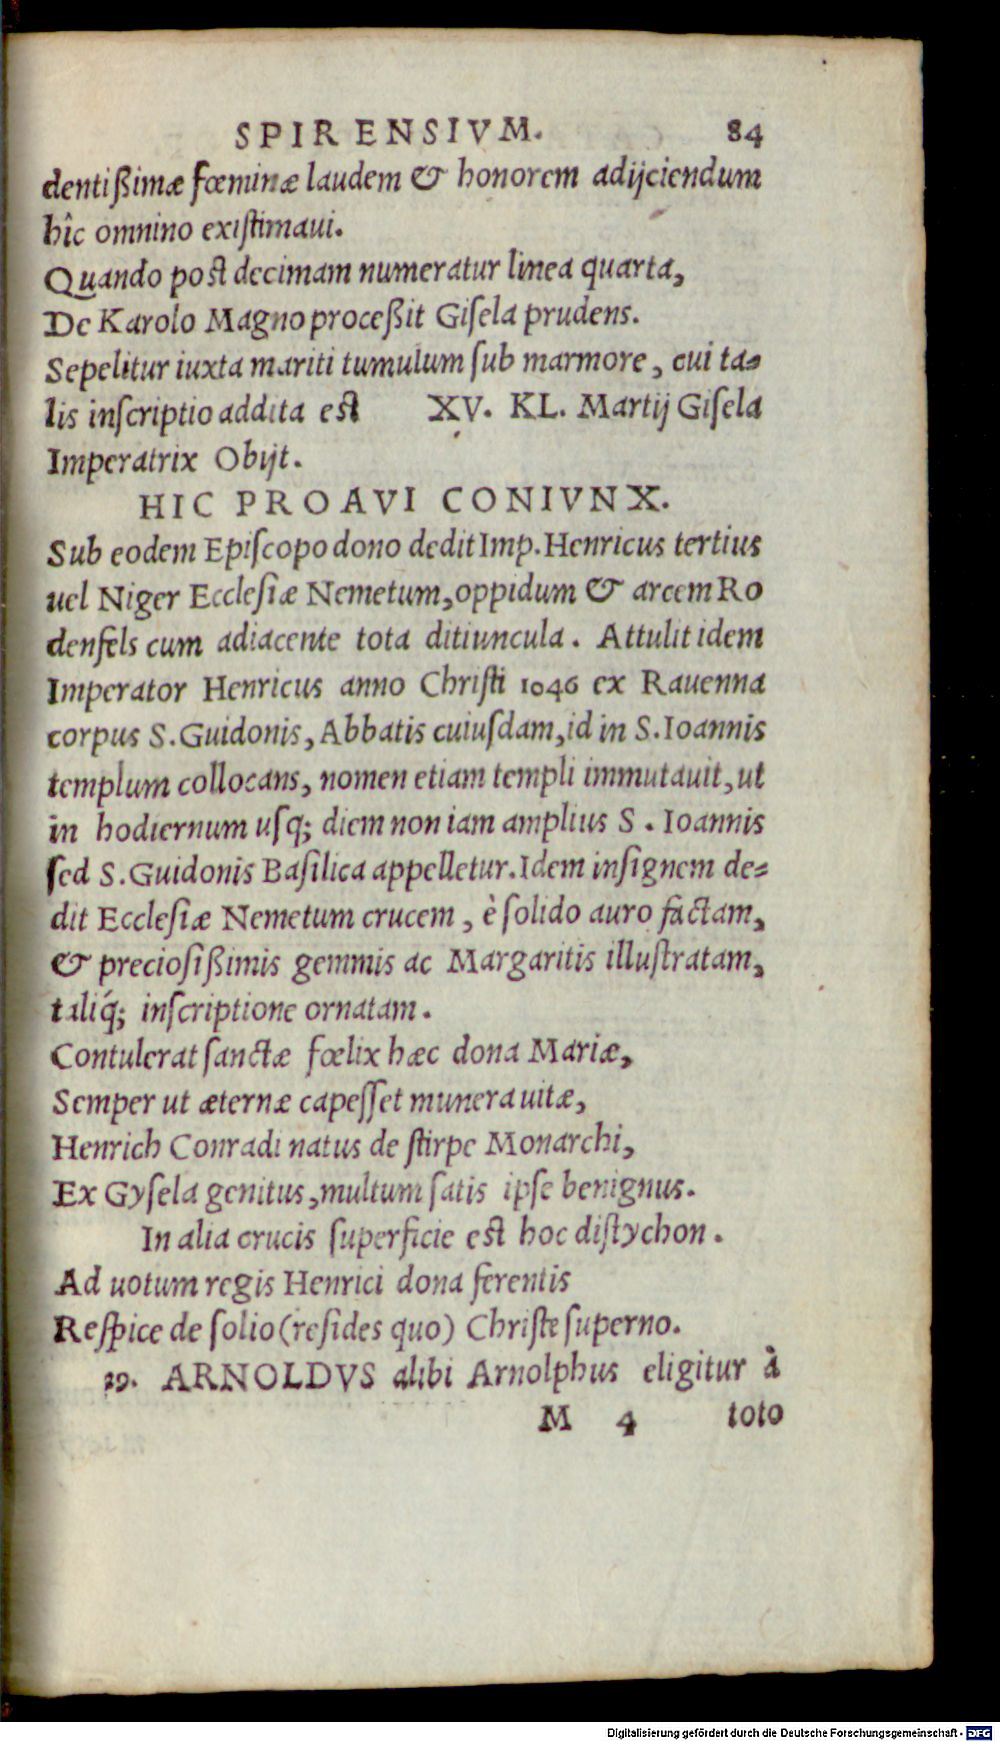 SPIRENSIVM. 84
dentißimæ fœminæ laudem & honorem adijciendum
hîc omnino exiſtimaui.
Quando poſt decimam numeratur linea quarta,
De Karolo Magno proceßit Giſela prudens.
Sepelitur iuxta mariti tumulum ſub marmore, cui ta-
lis inſcriptio addita eſt XV. KL. Martij Giſela
Imperatrix Obijt.
HIC PROAVI CONIVNX.
Sub eodem Epiſcopo dono dedit Imp. Henricus tertius
uel Niger Eccleſiæ Nemetum, oppidum & arcem Ro
denfels cum adiacente tota ditiuncula. Attulit idem
Imperator Henricus anno Chriſti 1046 ex Rauenna
corpus S. Guidonis, Abbatis cuiuſdam, id in S. Ioannis
templum collocans, nomen etiam templi immutauit, ut
in hodiernum uſq; diem non iam amplius S. Ioannis
ſed S. Guidonis Baſilica appelletur. Idem inſignem de-
dit Eccleſiæ Nemetum crucem, è ſolido auro factam,
& precioſißimis gemmis ac Margaritis illuſtratam,
taliq́; inſcriptione ornatam.
Contulerat ſanctæ fœlix hæc dona Mariæ,
Semper ut æternæ capeſſet munera uitæ,
Henrich Conradi natus de ſtirpe Monarchi,
Ex Gyſela genitus, multum ſatis ipſe benignus.
In alia crucis ſuperficie eſt hoc diſtychon.
Ad uotum regis Henrici dona ferentis
Reſpice de ſolio (reſides quo) Chriſte ſuperno.
29. ARNOLDVS alibi Arnolphus eligitur à
M 4 toto
Digitalisierung gefördert durch die Deutsche Forschungsgemeinschaft - DFG